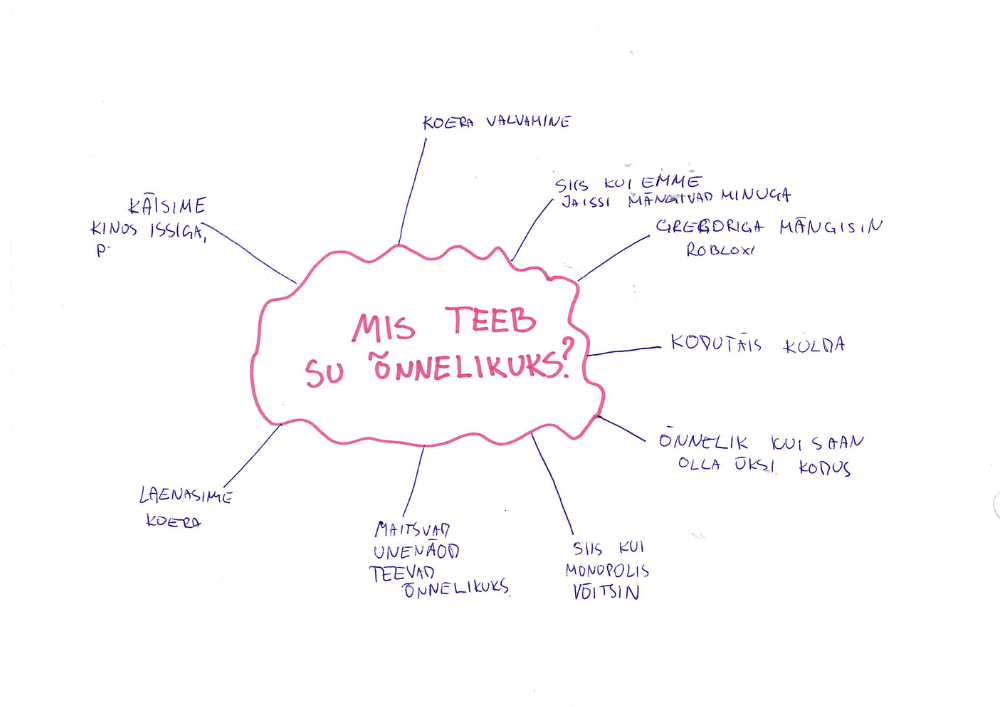 KOERA VALVAMINE
SIIS KUI EMME
JA ISSI MÄNGIVAD MINUGA
GREGORIGA MÄNGISIN
ROBLOXI
KÄISIME
KINOS ISSIGA,
P.
MIS TEEB
SU ÕNNELIKUKS?
KODUTÄIS KULDA
ÕNNELIK KUI SAAN
OLLA ÜKSI KODUS
LAENASIME
KOERA
MAITSVAD
UNENÄOD
TEEVAD
ÕNNELIKUKS
SIIS KUI
MONOPOLIS
VÕITSIN